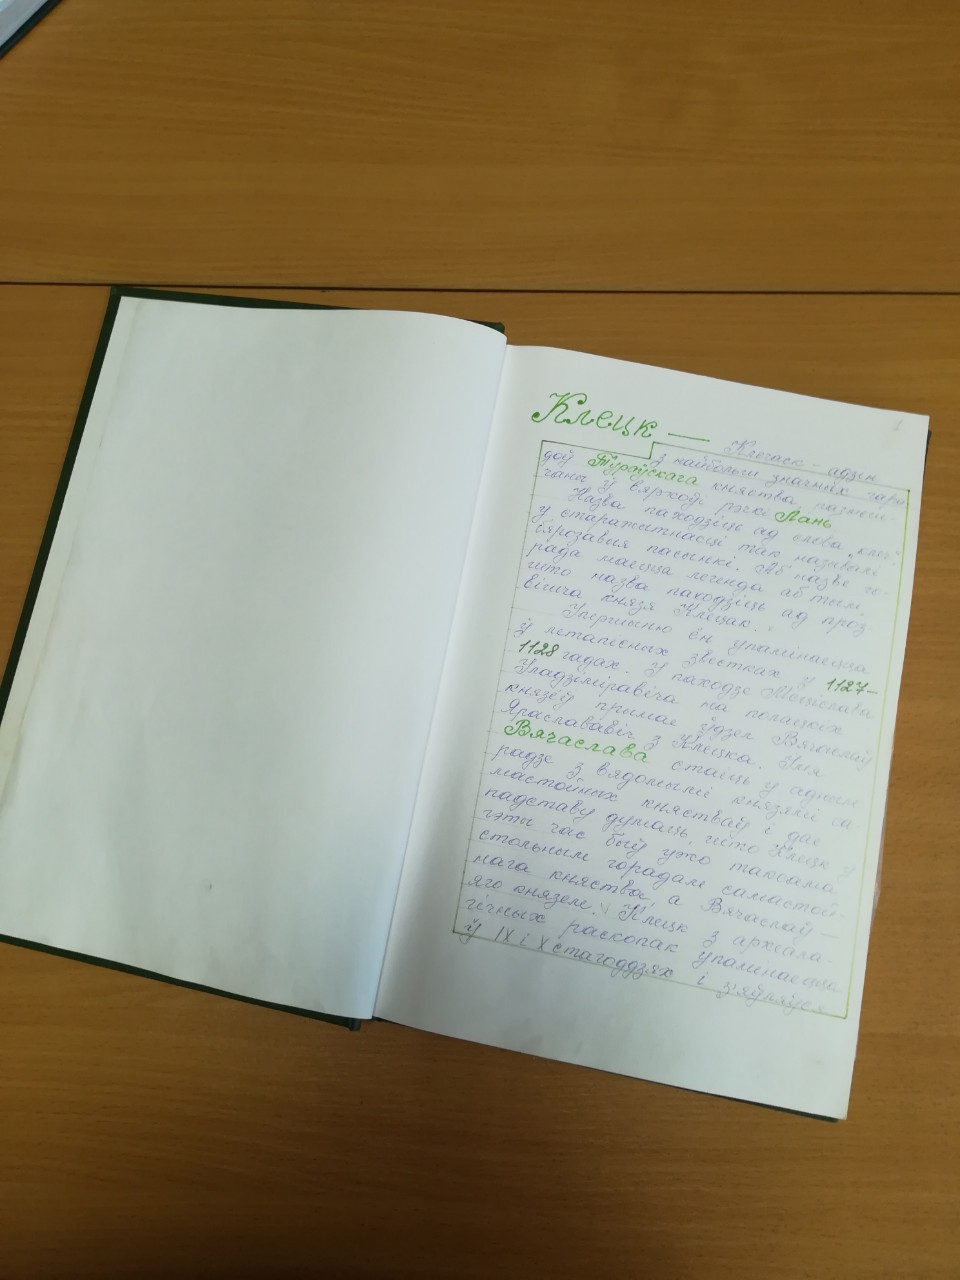 1
Клецк —
Клечаск - адзін
з найбольш значных гара
доў Тураўскага княства, размеш-
чаны ў вярхоўі рэчкі Лань
Назва паходзіць ад слова „клец".
У старажытнасці так называлі
бярозавыя пасынкі. Аб назве го-
рада маецца легенда аб тым,
што назва паходзіць ад проз
вішча князя Клецак.
Упершыню ён упамінаецца
ў летапісных звестках у 1127-
1128 гадах. У паходзе Мсціслава
Уладзіміравіча на полацкіх
князёў прымае ўдзел Вячаслаў
Яраслававіч з Клецка. Імя
Вячаслава стаіць у адным
радзе з вядомымі князямі са
мастойных княстваў і дае
падставу думаць, што Клецк у
гэты час быў ужо таксама
стольным горадам самастой-
нага княства, а Вячаслаў —
яго князем. Клецк з архела-
гічных раскопак упамінаецца
ў IX і X стагоддзях і з'яўляўся